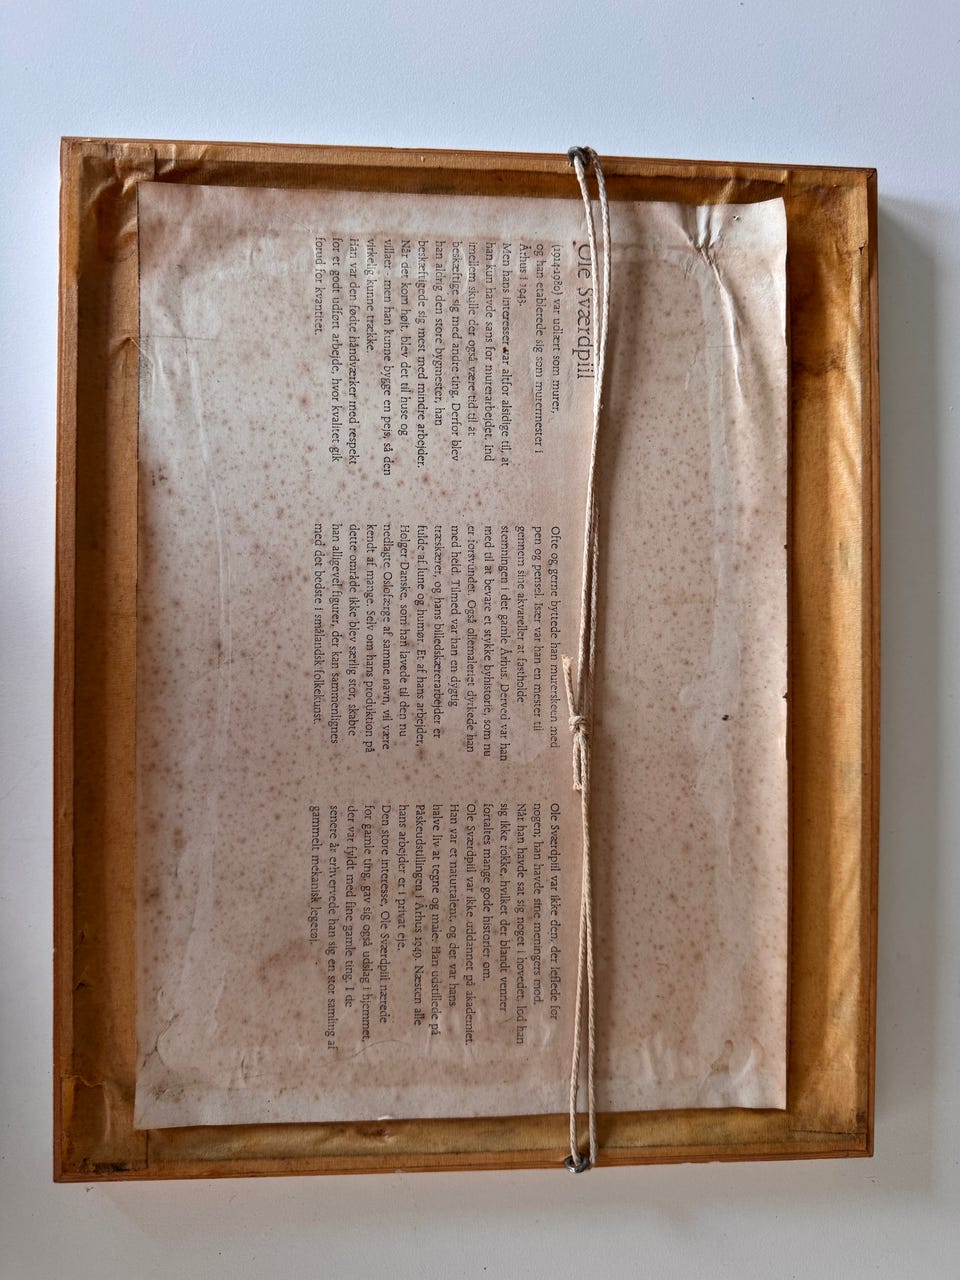 Ole Sværdpiil
(1914-1980) var udlært som murer,
og han etablerede sig som murermester i
Århus i 1943.
Men hans interesser var altfor alsidige til, at
han kun havde sans for murerarbejdet. Ind
imellem skulle der også være tid til at
beskæftige sig med andre ting. Derfor blev
han aldrig den store bygmester, han
beskæftigede sig mest med mindre arbejder.
Når det kom højt, blev det til huse og
villaer - men han kunne bygge en pejs, så den
virkelig kunne trække.
Han var den fødte håndværker med respekt
for et godt udført arbejde, hvor kvalitet gik
forud for kvantitet.
Ofte og gerne byttede han murerskeen med
pen og pensel. Især var han en mester til
gennem sine akvareller at fastholde
stemningen i det gamle Århus. Derved var han
med til at bevare et stykke byhistorie, som nu
er forsvundet. Også oliemaleriet dyrkede han
med held. Tilmed var han en dygtig
træskærer, og hans billedskærerarbejder er
fulde af lune og humør. Et af hans arbejder,
Holger Danske, som han lavede til den nu
nedlagte Oslofærge af samme navn, vil være
kendt af mange. Selv om hans produktion på
dette område ikke blev særlig stor, skabte
han alligevel figurer, der kan sammenlignes
med det bedste i smålandsk folkekunst.
Ole Sværdpiil var ikke den, der leflede for
nogen; han havde sine meningers mod.
Når han havde sat sig noget i hovedet, lod han
sig ikke rokke, hvilket der blandt venner
fortaltes mange gode historier om.
Ole Sværdpiil var ikke uddannet på akademiet.
Han var et naturtalent, og der var hans
halve liv at tegne og male. Han udstillede på
Påskeudstillingen i Århus 1949. Næsten alle
hans arbejder er i privat eje.
Den store interesse, Ole Sværdpiil nærede
for gamle ting, gav sig også udslag i hjemmet,
der var fyldt med fine gamle ting. I de
senere år erhvervede han sig en stor samling af
gammelt mekanisk legetøj.